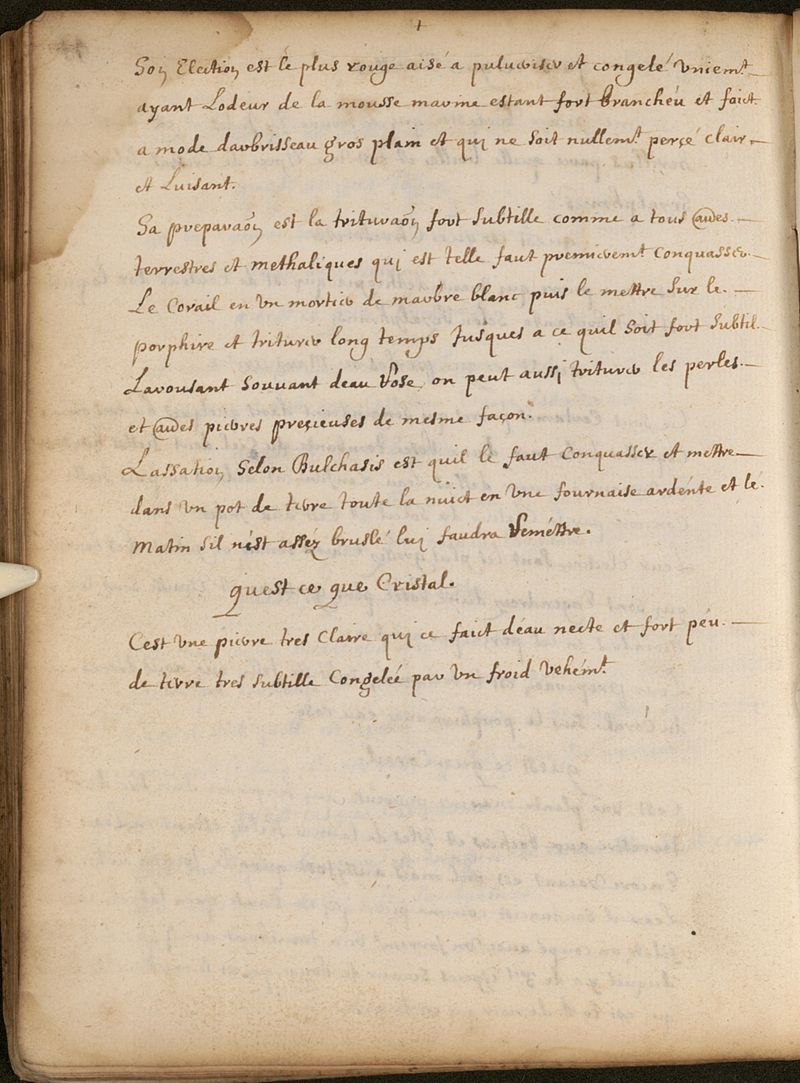 +
Son Election est le plus rouge aisé a pulueriser et congelé vniemt
ayant Lodeur de la mousse marine estant fort brancheu et faict
a mode darbrisseau gros plain et qui ne soit nullemt perçé clair
et Luisant.
Sa preparaōn est la trituraōn fort subtille comme a tous autres
terrestres et methaliques qui est telle faut premieremt conquasser
Le Corail en vn mortier de marbre blanc puis le mettre sur le
porphire et triturer long temps Jusques a ce quil soit fort subtil
Larousant souuant deau Rose, on peut aussi triturer les perles
et autres pierres preçieuses de mesme façon.
Lassation selon Bulchasis est quil le faut Conquasser et mettre
dans vn pot de terre toute la nuict en vne fournaise ardente et le
matin sil nest assez bruslé lui faudra Remettre.
quest ce que Cristal.
Cest vne pierre tres Claire qui ce faict deau necte et fort peu
de terre tres subtille Congeleé par vn froid vehemt